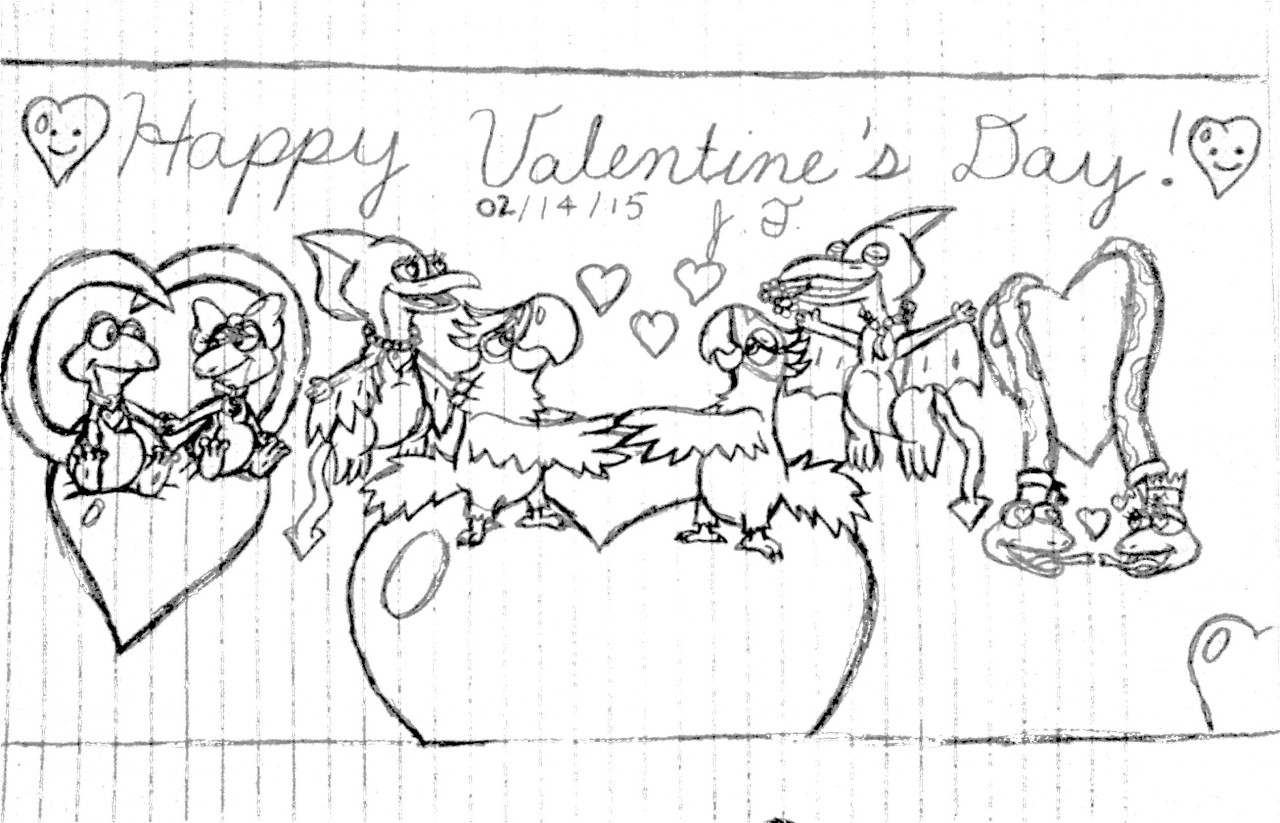 Happy Valentine's Day!
02/14/15 J. F.